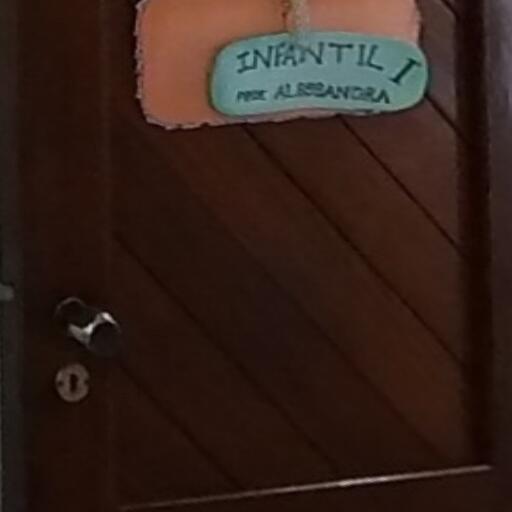 INFANTIL I
PROF. ALESSANDRA